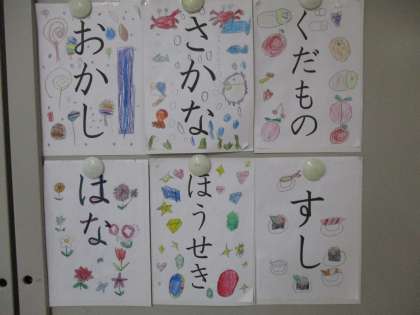 おかし
さかな
くだもの
はな
ほうせき
すし